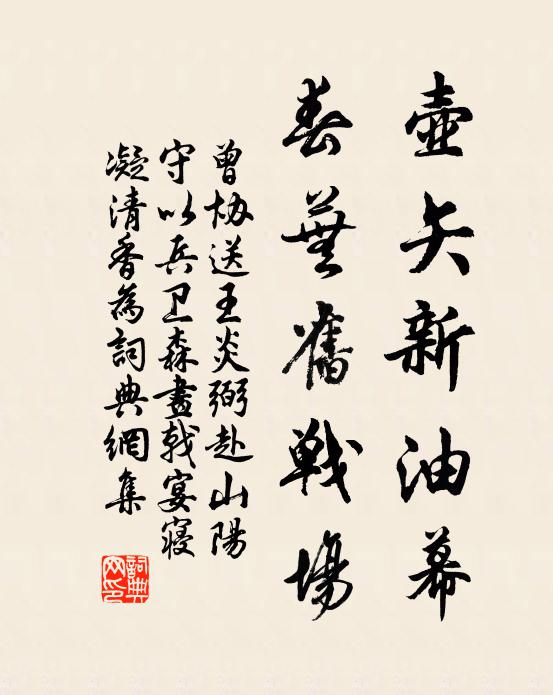 壺矢新油幕
春蕪舊戰場
曾协送王炎弼赴山陽
守以兵卫森畫戟宴寢
凝清香為詞典網集
詞典
网印